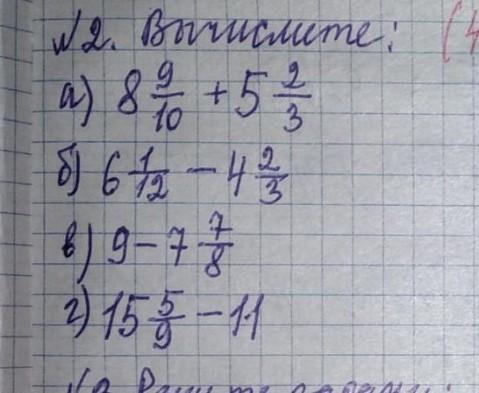 №2. Вычислите: (4
а) 8 9/10 + 5 2/3
б) 6 1/12 − 4 2/3
в) 9 − 7 7/8
г) 15 5/9 − 11